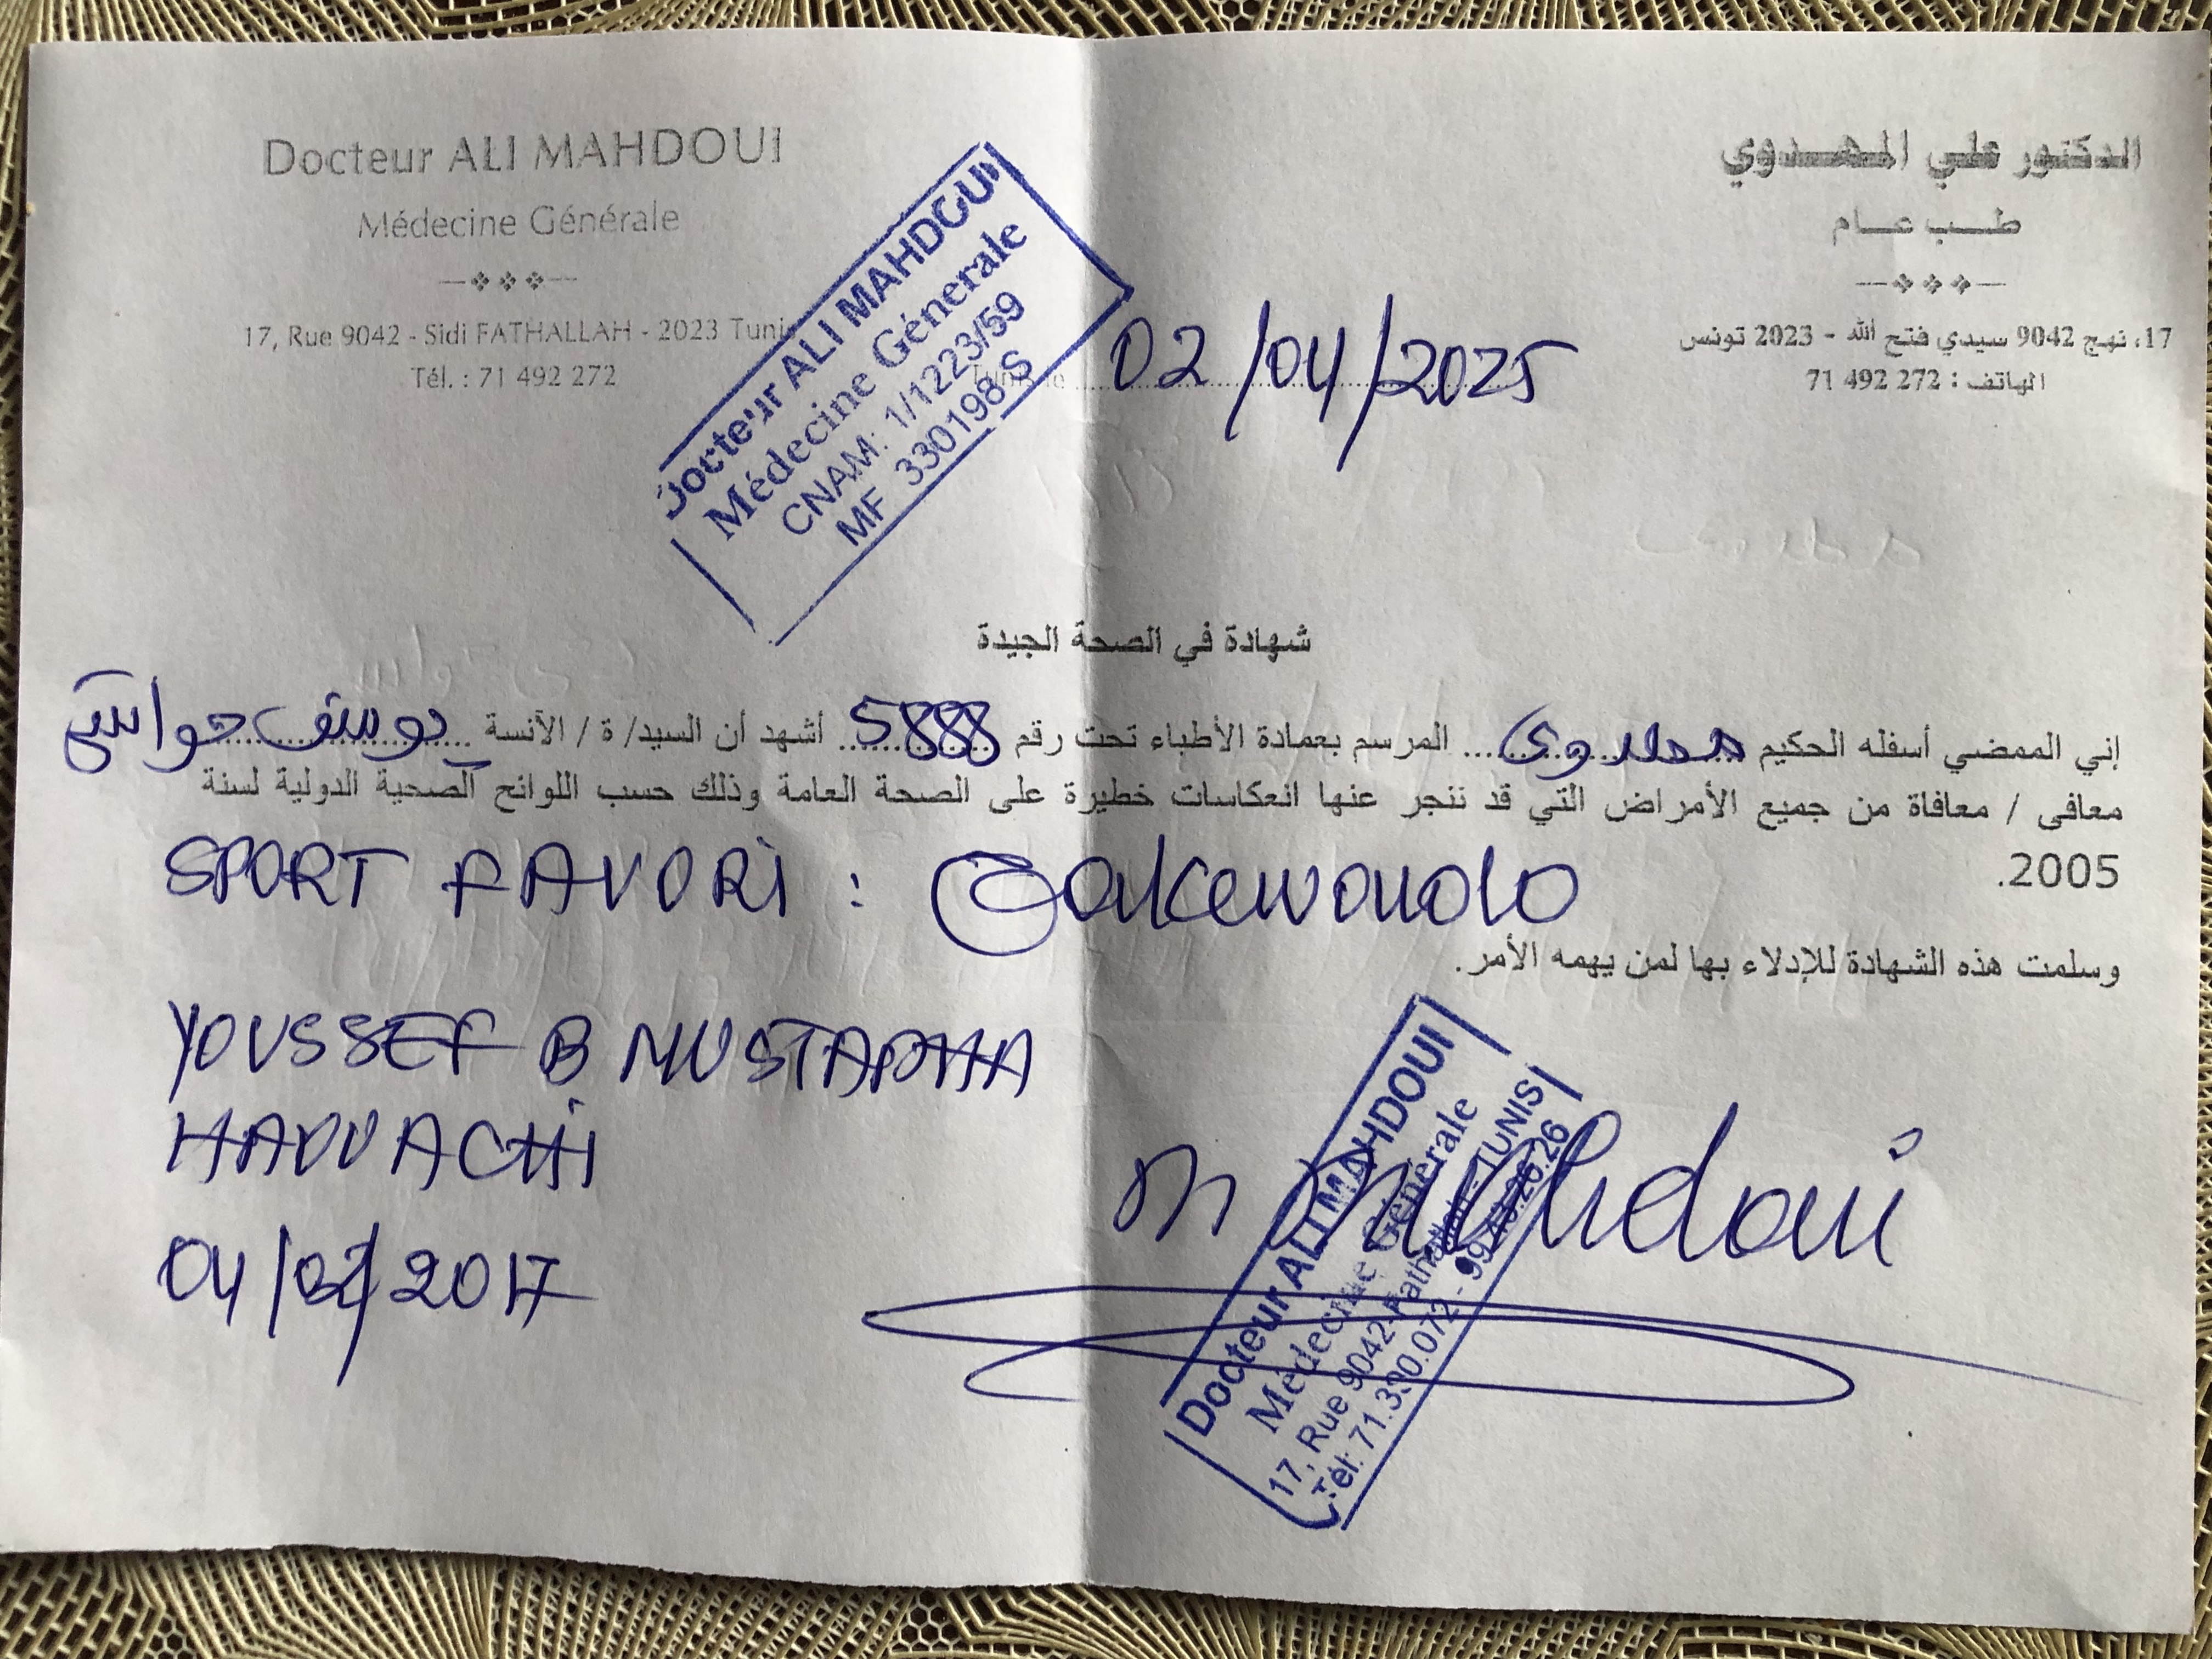 Docteur ALI MAHDOUI
Médecine Générale
17, Rue 9042 - Sidi FATHALLAH - 2023 Tunis
Tél. : 71 492 272
الدكتور علي المهدوي
طب عام
17، نهج 9042 سيدي فتح الله - 2023 تونس
الهاتف : 272 492 71
Docteur ALI MAHDOUI
Médecine Génerale
CNAM: 1/1223/59
MF 330198 S
Tunis le 02/04/2025
شهادة في الصحة الجيدة
إني الممضي أسفله الحكيم مهدوي المرسم بعمادة الأطباء تحت رقم 5888 أشهد أن السيد/ ة / الآنسة يوسف حواشي
معافى / معافاة من جميع الأمراض التي قد تنجر عنها انعكاسات خطيرة على الصحة العامة وذلك حسب اللوائح الصحية الدولية لسنة
2005.
SPORT FAVORI :
وسلمت هذه الشهادة للإدلاء بها لمن يهمه الأمر.
YOUSSEF B MUSTAPHA
HAOUACHI
04/02/2017
Mahdoui
Docteur ALI MAHDOUI
Médecine Générale
17, Rue 9042-Fathallah-TUNIS
Tél: 71.390.072 - 99.43.26.26